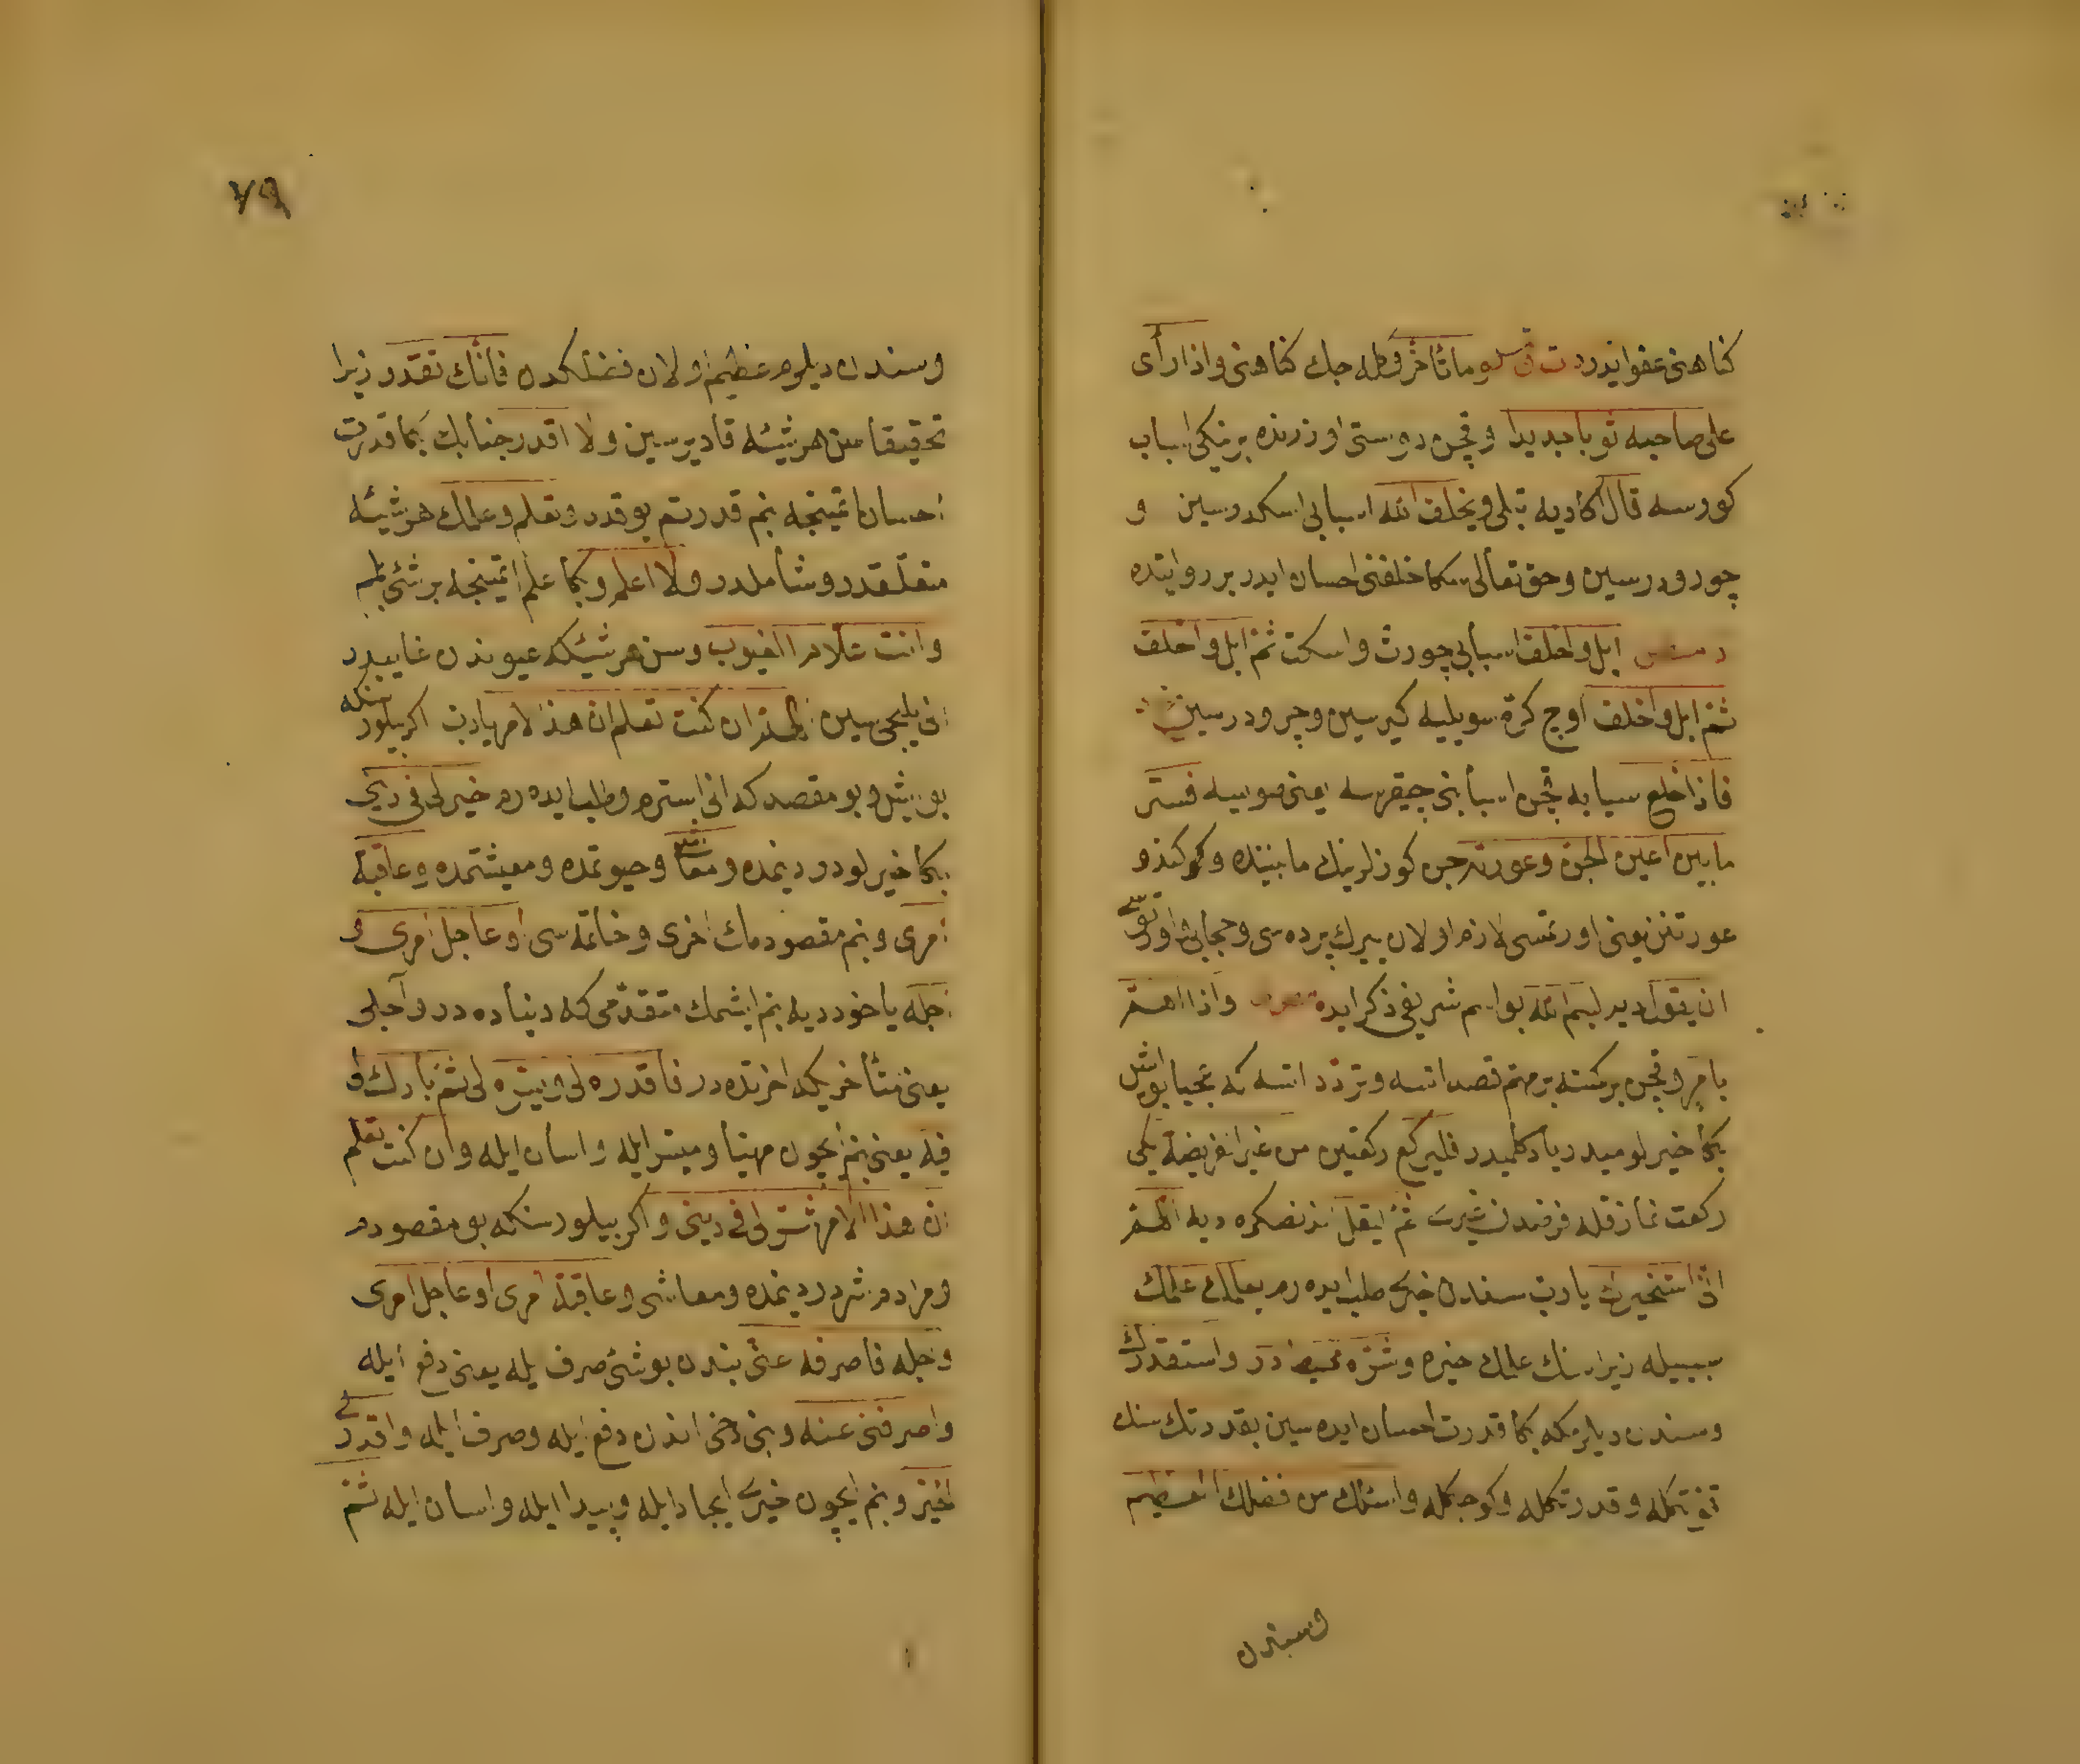 كناهنى عفو ايدر وما تأخر وكله جك كناهنى واذا رأى
على صاحبه ثوبا جديدا وقچن دوستى اوزرنده بر يكى اسباب
كورسه قال اكا ديه تبلى ويخلف الله اسبابى اسكدرسين و
چورودرسين وحق تعالى سكا خلفنى احسان ايدر بر روايتده
ابل واخلف اسبابى چورت واسكت ثم ابل واخلف
ثم ابل واخلف اوچ كره سويليه كيرسين وچرودرسين
فاذا خلع ثيابه قچن اسبابنى چيقرسه يعنى صويسه فستر
ما بين اعين الجن وعورته جن كوزلرينك مابيننده وكندو
عورتنن يعنى اورتمسى لازم اولان يرك پرده سى وحجابى
ان يقول ديد بسم الله بو اسم شريفى ذكر ايده واذا اهم
بامر وقچن بر كمسه بر مهم قصد اتسه وتردد اتسه كه عجبا بو ايش
بكا خيرلوميدر يا دكلميدر فليركع ركعتين من غير الفريضة ايكى
ركعت نماز قله فرضدن غيرى ثم ليقل بعد نصكره ديه اللهم
انى استخيرك يا رب سندن خير طلب ايده رم بعلمك علمك
سببيله زيرا سنك علمك خيره وشره محيطدر واستقدرك
وسندن ديلرمكه بكا قدرت احسان ايده سين بقدرتك سنك
قوتكله وقدرتكله وكوجكله واسئلك من فضلك العظيم
وسندن
٧٩
وسندن ديلرم عظيم اولان فضلكدن فانك تقدر زيرا
تحقيقا سن هر شيئه قادرسين ولا اقدر جنابك بكا قدرت
احسان اتمينجه بنم قدرتم يوقدر وتعلم وعلمك هر شيئه
متعلقدر وشاملدر ولا اعلم وبكا علم اتمينجه بر شئ بلمم
وانت علام الغيوب وسن هر شيئكه عيوندن غايبدر
انى بيليجى سين اللهم ان كنت تعلم ان هذا الامر يا رب اكر بيلورسنكه
بو ايش وبو مقصد كه انى استرم وطلب ايده رم خير لى فى دينى
بكا خيرلودر دينمده ومعاشى وحيوتمده ومعيشتمده وعاقبة
امرى وبنم مقصودمك آخرى وخاتمه سى او عاجل امرى و
اجله ياخود ديه بنم ايشمك متقدمى كه دنياده در وآجلى
يعنى متأخرى كه آخرتده در فاقدره لى ويسره لى ثم بارك لى
فيه يعنى بنم ايچون مهيا وميسر ايله واسان ايله وان كنت تعلم
ان هذا الامر شر لى فى دينى واكر بيلورسنكه بو مقصودم
ومرادم شردر دينمده ومعاشى وعاقبة امرى او عاجل امرى
واجله فاصرفه عنى بندن بو شئ صرف ايله يعنى دفع ايله
واصرفنى عنه وبنى دخى اندن دفع ايله وصرف ايله واقدر لى
الخير وبنم ايچون خيرى ايجاد ايله وپيدا ايله واسان ايله ثم